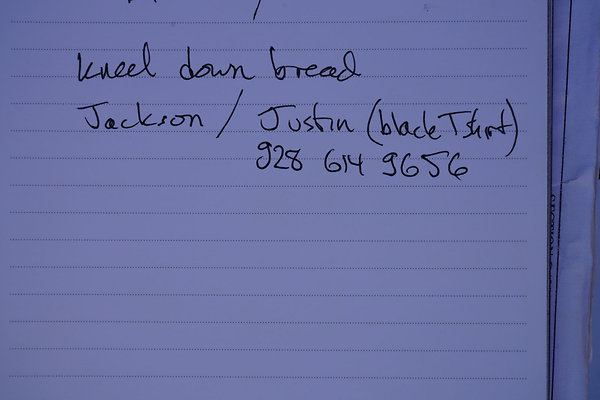 kneel down bread
Jackson / Justin (black T shirt)
928 614 9656